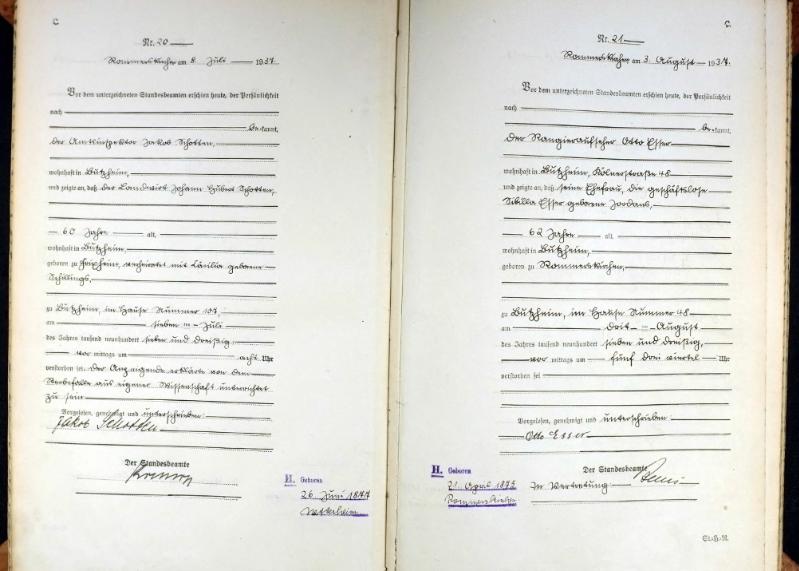 C
Nr. 20
Rommerskirchen am 8 Juli 1937
Vor dem unterzeichneten Standesbeamten erschien heute, der Persönlichkeit
nach
bekannt,
der Amtsinspektor Jakob Schotten,
wohnhaft in Butzheim,
und zeigte an, daß der Landwirt Johann Hubert Schotten,
60 Jahre alt,
wohnhaft in Butzheim,
geboren zu verheiratet mit Cäcilia geborene
Schillings,
zu Butzheim, im Hause Nummer 107,
am sieben Juli
des Jahres tausend neunhundert sieben und dreißig
vor mittags um acht Uhr
verstorben sei. Der Anzeigende erklärte von dem
Sterbefalle aus eigener Wissenschaft unterrichtet
zu sein
Vorgelesen, genehmigt und unterschrieben
Jakob Schotten
Der Standesbeamte
H. Geboren
26. Juni 1877
C.
Nr. 21
Rommerskirchen am 3. August 1937.
Vor dem unterzeichneten Standesbeamten erschien heute, der Persönlichkeit
nach
bekannt,
der Rangieraufseher Otto Esser
wohnhaft in Butzheim, Kölnerstraße 48
und zeigte an, daß seine Ehefrau, die geschäftslose
Sibilla Esser geborene Jordans,
62 Jahre alt,
wohnhaft in Butzheim,
geboren zu Rommerskirchen,
zu Butzheim, im Hause Nummer 48
am drei August
des Jahres tausend neunhundert sieben und dreißig,
vor mittags um fünf drei viertel Uhr
verstorben sei
Vorgelesen, genehmigt und unterschrieben
Otto Esser
Der Standesbeamte
In Vertretung
H. Geboren
21. April 1875
Rommerskirchen